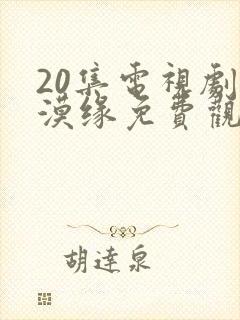 20集電視劇
漠缘免費觀
胡達泉